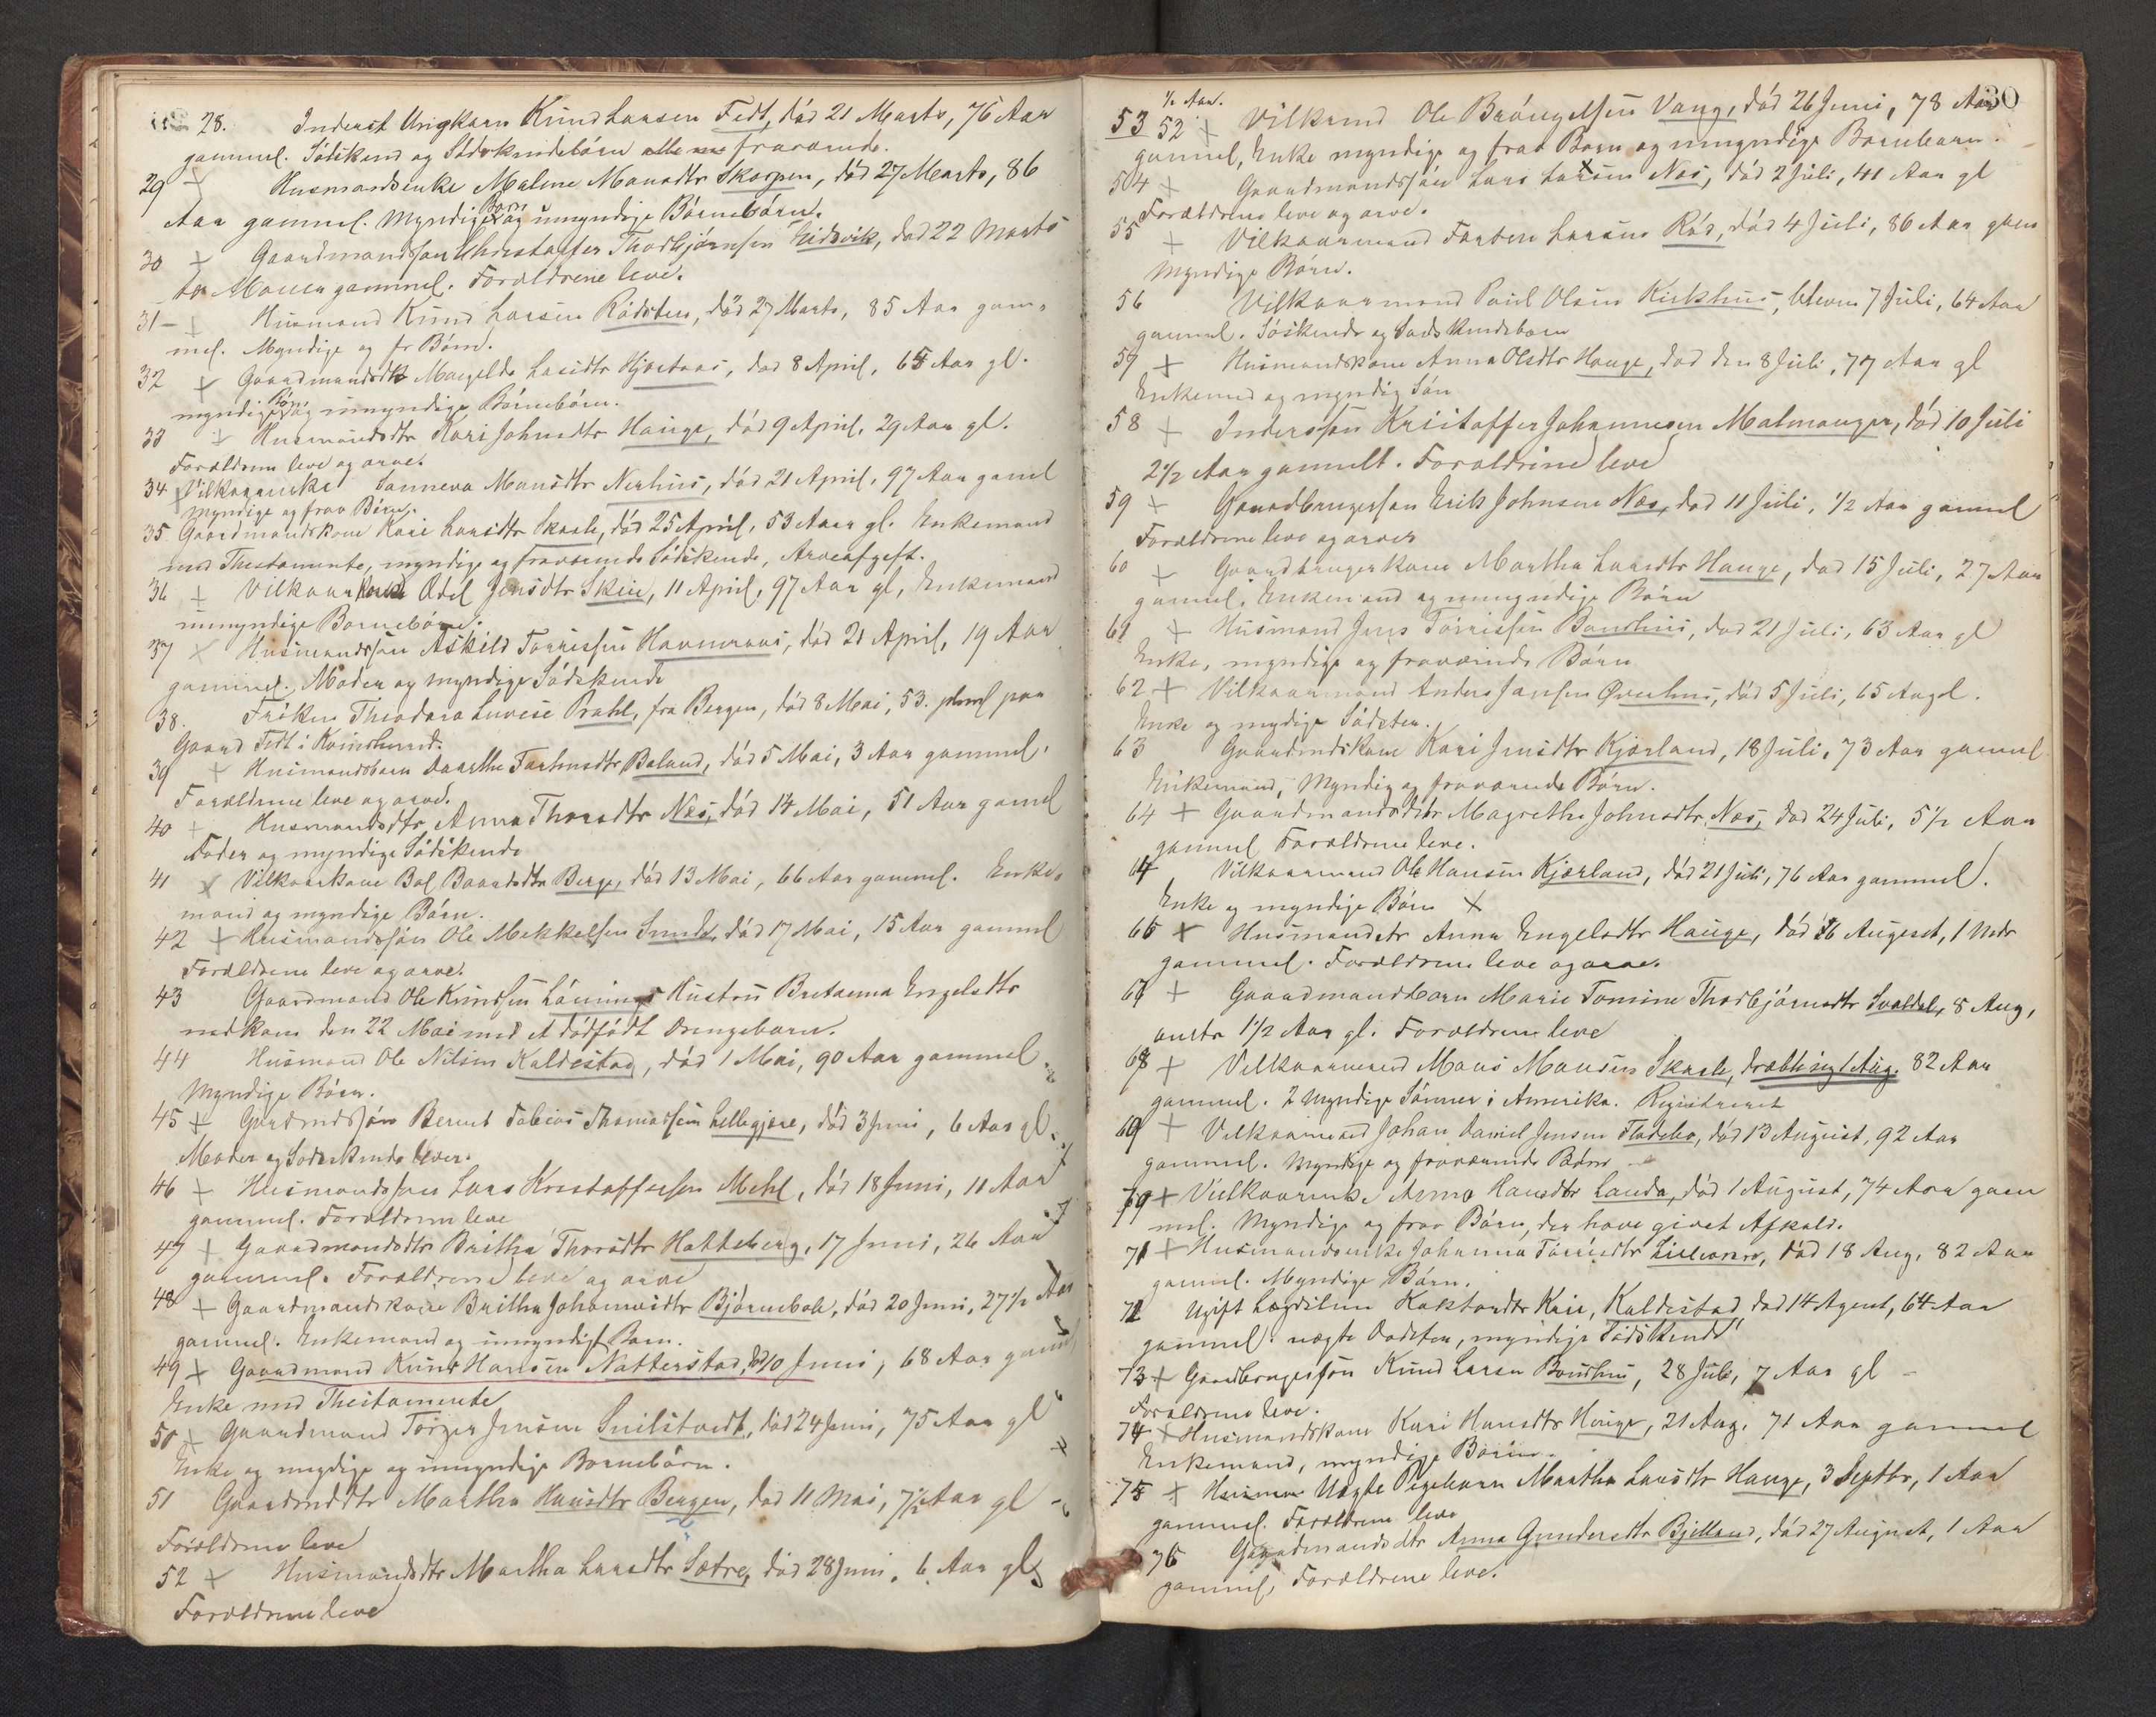 28. Inderst Ungkarn Knud Larsen Fedt, död 21 Marts, 76 Aar
gammel. Södskend og Södskendebörn fraværende.
29 Husmandsenke Malene Monsdtr Skorpen, död 27 Marts, 86
Aar gammel. Myndige Börn og umyndige Börnebörn.
30 Gaardmandssön Christoffer Thorbjörnsen Eidsvik, död 22 Marts
gammel. Forældrene leve.
31 Husmand Knud Larsen Rödsten, död 27 Marts, 85 Aar gam-
mel. Myndige og fr Börn.
32 Gaardmandsdtr Larsdtr Hjortaas, död 8 April, 65 Aar gl.
myndige Börn og umyndige Börnebörn.
33 Husmandsdtr Kari Johnsdtr Hauge, död 9 April, 29 Aar gl.
Forældrene leve og arve.
34 Vilkaarsenke Sanneva Monsdtr Nerhus, död 21 April, 97 Aar gamel
Myndige og frav Börn.
35 Gaardmandskone Kari Larsdtr Skaale, död 25 April, 53 Aar gl. Enkemand
med Thestamente, myndige og fraværende Södskende, Arveafgift.
36 Vilkaarskone Odel Jensdtr Skeie, 11 April, 97 Aar gl, Enkemand
umyndige Börnebörn.
37 Husmandssön Askild Torrissen Havneraas, död 21 April, 19 Aar
gammel. Moder og myndige Södskende
38. Fröken Theodora Lovise Prahl, fra Bergen, död 8 Mai, 53. paa
Gaard Fedt i Kvindherred.
39 Husmandsbarn Daarthe Torkensdtr Boland, död 5 Mai, 3 Aar gammel,
Forældrene leve og arve.
40 Husmandsdtr Anna Thorsdtr Næs, död 14 Mai, 51 Aar gamel
Fader og myndige Södskende
41 Vilkaarskone Bol Baardsdtr Berge, död 13 Mai, 66 Aar gammel. Enke-
mand og myndige Börn.
42 Husmandssön Ole Mekkelsen Sunde, död 17 Mai, 15 Aar gammel
Forældrene leve og arve.
43 Gaardmand Ole Knudsen Lönnings Hustru Bretanna Engelsdtr
nedkom den 22 Mai med et dödfödt Drengebarn.
44 Husmand Ole Nilsen Kaldestad, död 1 Mai, 90 Aar gammel
Myndige Börn.
45 Gaardmdssön Bernt Tobias Thomassen Lillegjære, död 3 Juni, 6 Aar gl.
Moder og Södskende lever.
46 Husmandssön Lars Kristoffersen Mehl, död 18 Juni, 11 Aar
gammel. Forældrene leve
47 Gaardmandsdtr Britha Thorsdtr Hatteberg, 17 Juni, 26 Aar
gammel. Forældrene leve og arve
48 Gaardmandskone Britha Johannesdtr Björnebole, död 20 Juni, 27½ Aar
gammel. Enkemand og umyndigt Barn.
49 Gaardmand Knut Hansen Natterstad, död 10 Juni, 68 Aar gamel
Enke med Thestamente
50 Gaardmand Torger Jensen Snilstvedt, död 24 Juni, 75 Aar gl
Enke og myndige og umyndige Börnebörn.
51 Gaardmdsdtr Martha Hansdtr Bergen, död 11 Mai, 7½ Aar gl
Forældrene leve
52 Husmandsdtr Martha Larsdtr Sætre, död 28 Juni, 6 Aar gl
Forældrene leve
30
½ Aar.
53 52 Vilkmd Ole Bröngelsen Vang, död 26 Juni, 78 Aar
gammel, Enke myndige og frav Börn og umyndige Börnebörn.
54 Gaardmandssön Lars Larsen Næs, död 2 Juli, 41 Aar gl
Forældrene leve og arve.
55 Vilkaarmand Torben Larsen Röd, död 4 Juli, 86 Aar gam
Myndige Börn.
56 Vilkaarmand Poul Olsen Kirkhus, 7 Juli, 64 Aar
gammel. Söskende og Södskendebörn
57 Husmandskone Anna Olsdtr Hauge, död den 8 Juli, 77 Aar gl
Enkemd og myndig Sön
58 Inderssön Kristoffer Johannesen Malmanger, död 10 Juli
2½ Aar gammelt. Forældrene leve
59 Gaardbrugerssön Erik Johnsen Næs, död 11 Juli, ½ Aar gammel
Forældrene leve og arver
60 Gaardbrugerkone Martha Larsdtr Hauge, död 15 Juli, 27 Aar
gammel. Enkemand og umyndige Börn
61 Husmand Jens Torrissen Bondhus, död 21 Juli, 63 Aar gl
Enke, myndige og fraværende Börn
62 Vilkaarmand Anders Jansen Øverhus, död 5 Juli, 65 Aar gl.
Enke og mydige
63 Gaardmdskone Kari Jensdtr Kjærland, 18 Juli, 73 Aar gammel
Enkemand, Myndig og fraværende Börn.
64 Gaardmandsdtr Magrethe Johnsdtr Næs, död 24 Juli, 5½ Aar
gammel Forældrene leve.
Vilkaarmand Ole Hansen Kjærland, död 21 Juli, 76 Aar gammel.
Enke og myndige Börn
66 Husmandsdtr Anna Engelsdtr Hauge, död 26 August, 1
gammel. Forældrene leve og arve.
67 Gaardmandbarn Marie Tomine Thorbjörnsdtr 8 Aug,
1½ Aar gl. Forældrene leve
68 Vilkaarmand Mons Monsen Skaale, dræbte sig 1 Aug. 82 Aar
gammel. 2 Myndige Sönner i Amerika. Registreret
69 Vilkaarmand Johan Daniel Jensen Flatebo, död 13 August, 92 Aar
gammel. Myndige og fraværende Börn
70 Vilkaarenke Anna Hansdtr Landa, död 1 August, 74 Aar gam
mel. Myndige og frav Börn, der have givet Afkald.
71 Husmandsenke Johanna Torrisdtr död 18 Aug. 82 Aar
gammel. Myndige Börn.
72 Ugift Lægdslem Kaldestad, död 14 August, 64 Aar
gammel. myndige Södskende
73 Gaardbrugersön Knud Larsen Bondhus, 28 Juli, 7 Aar gl
Forældrene leve.
74 Husmandskone Kari Hansdtr Hauge, 21 Aug. 71 Aar gammel
Enkemand, myndige Börn.
75 Uægte Pigebarn Martha Larsdtr Hauge, 3 Septbr, 1 Aar
gammel. Forældrene leve
76 Gaardmandsdtr Anna Gundersdtr Bjelland, död 27 August, 1 Aar
gammel, Forældrene leve.